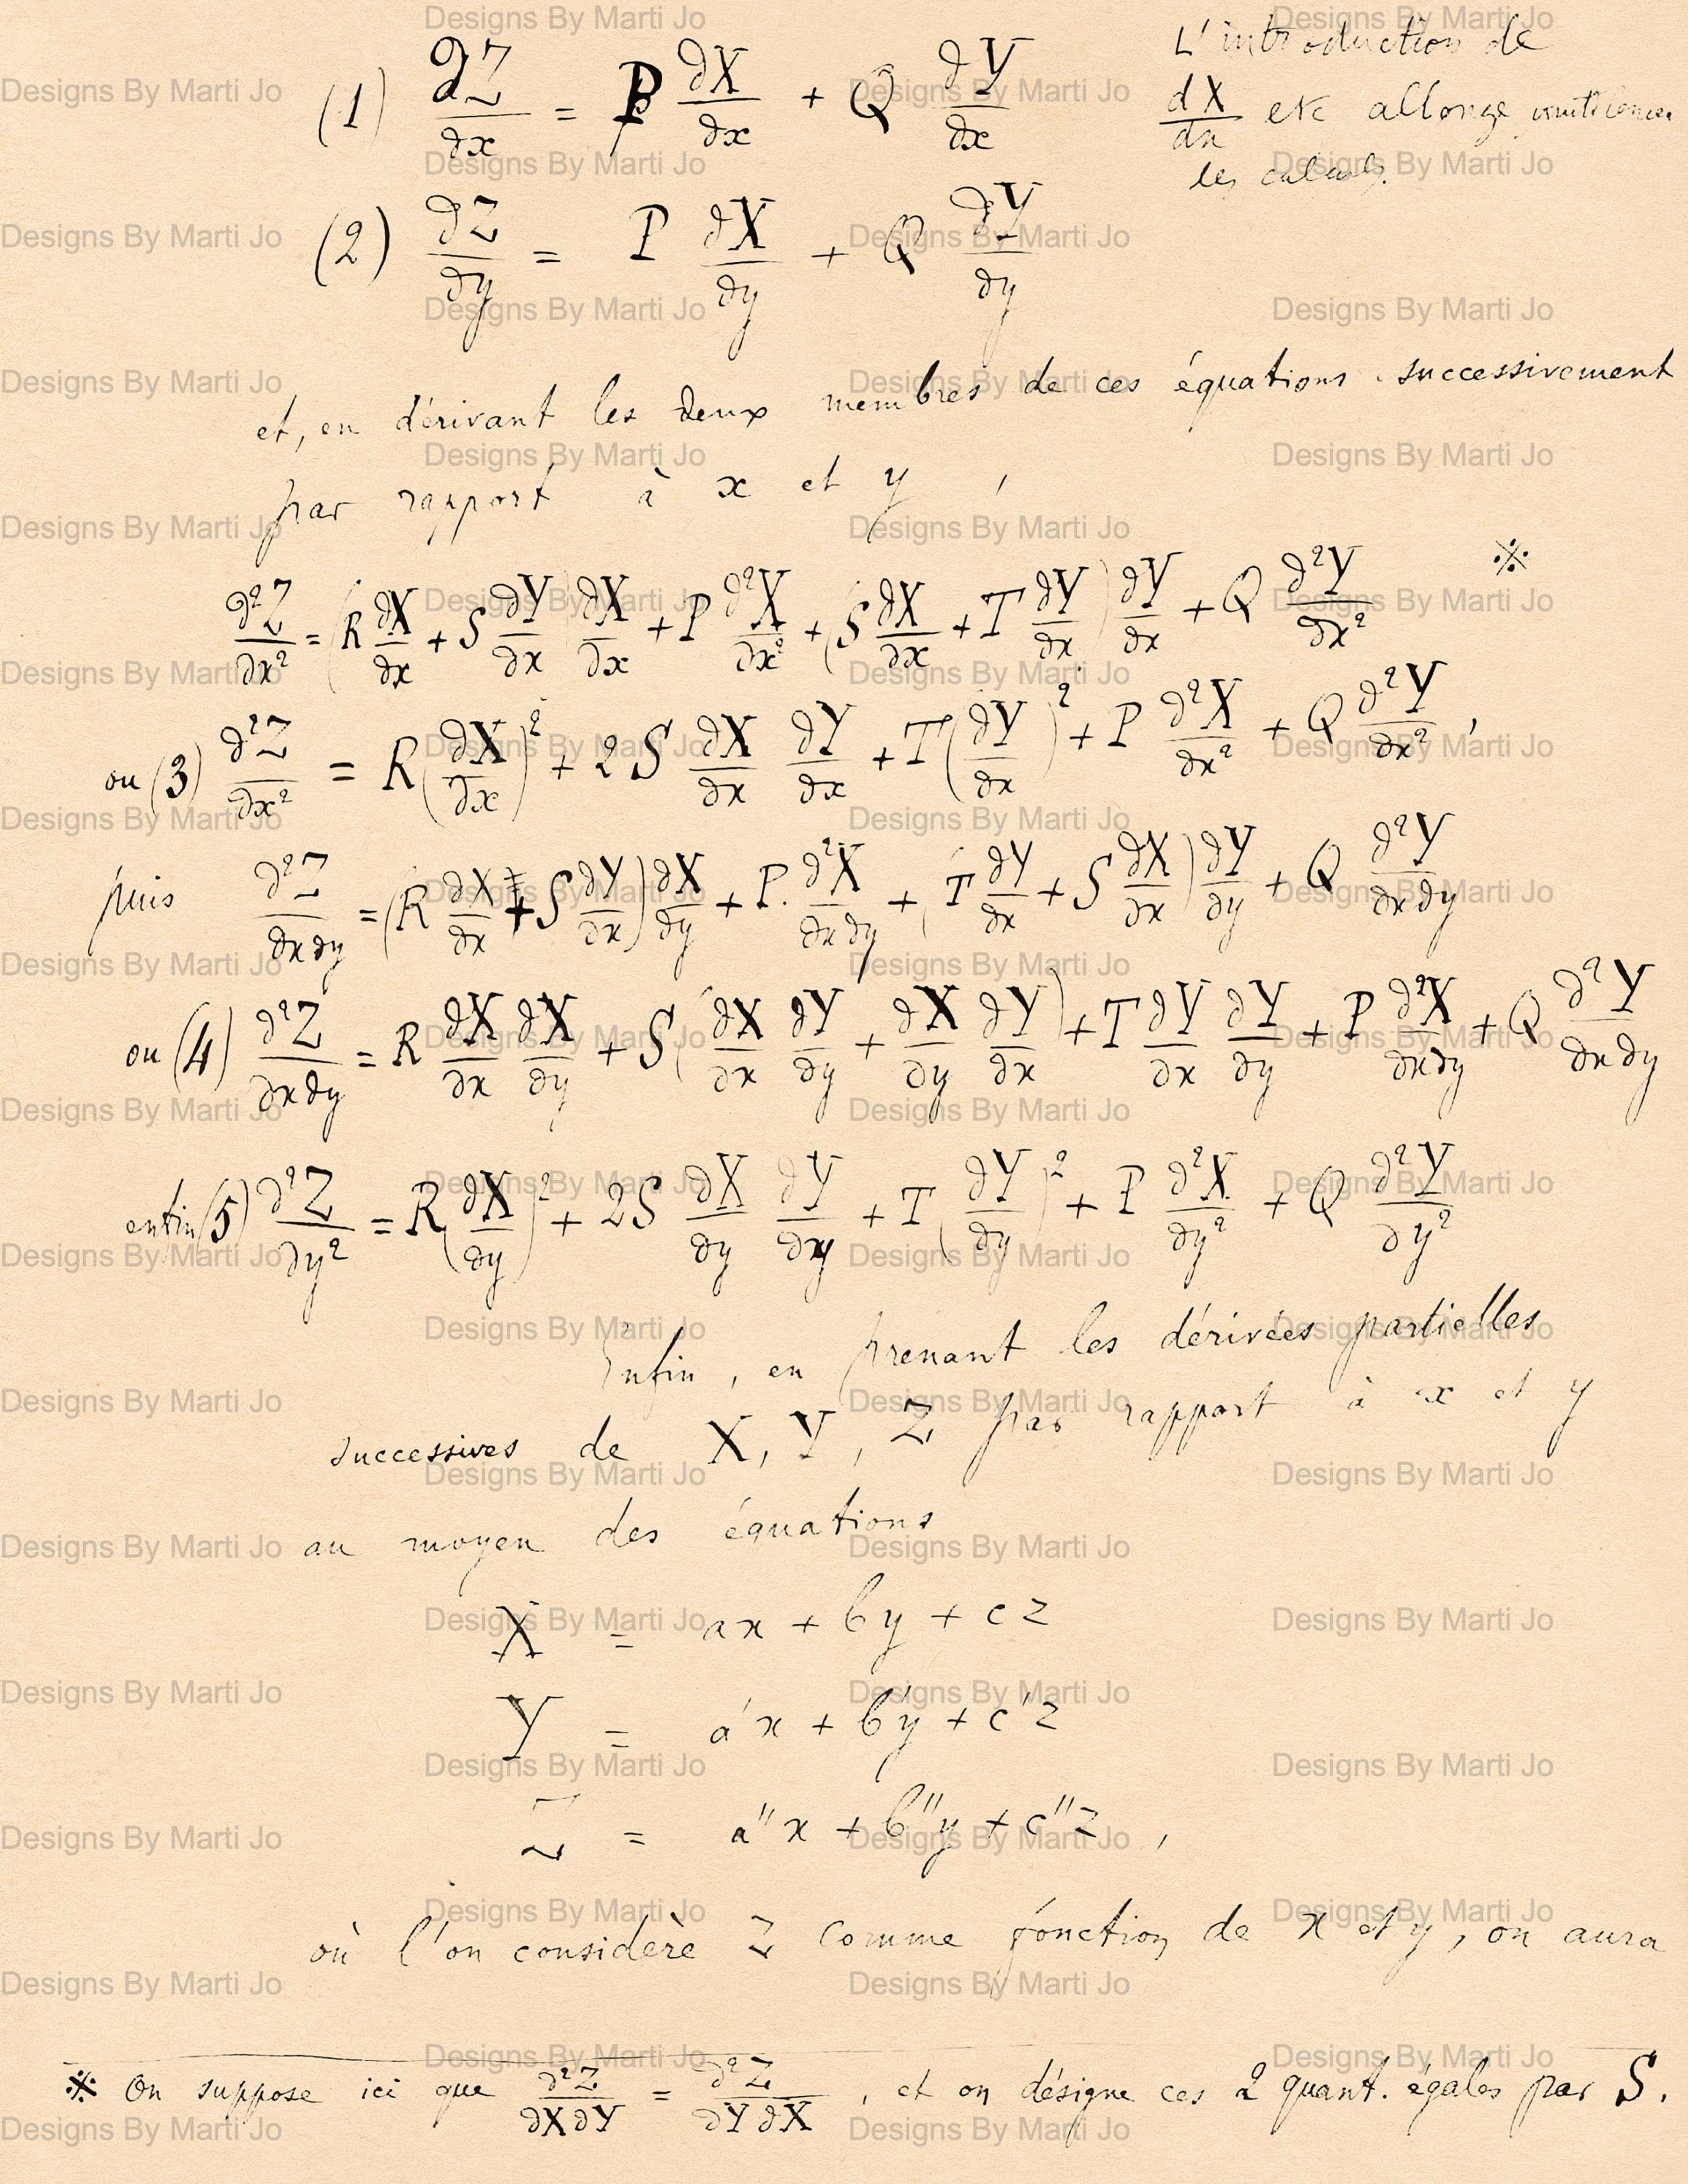 (1) ∂Z/∂x = P ∂X/∂x + Q ∂Y/∂x
L'introduction de
dX/dx etc allonge
les calculs.
(2) ∂Z/∂y = P ∂X/∂y + Q ∂Y/∂y
et, en dérivant les deux membres de ces équations successivement
par rapport à x et y ,
∂²Z/∂x² = (R ∂X/∂x + S ∂Y/∂x) ∂X/∂x + P ∂²X/∂x² + (S ∂X/∂x + T ∂Y/∂x) ∂Y/∂x + Q ∂²Y/∂x² ※
ou (3) ∂²Z/∂x² = R(∂X/∂x)² + 2S ∂X/∂x ∂Y/∂x + T(∂Y/∂x)² + P ∂²X/∂x² + Q ∂²Y/∂x² ,
puis ∂²Z/∂x∂y = (R ∂X/∂x + S ∂Y/∂x) ∂X/∂y + P. ∂²X/∂x∂y + (T ∂Y/∂x + S ∂X/∂x) ∂Y/∂y + Q ∂²Y/∂x∂y
ou (4) ∂²Z/∂x∂y = R ∂X/∂x ∂X/∂y + S(∂X/∂x ∂Y/∂y + ∂X/∂y ∂Y/∂x) + T ∂Y/∂x ∂Y/∂y + P ∂²X/∂x∂y + Q ∂²Y/∂x∂y
enfin (5) ∂²Z/∂y² = R(∂X/∂y)² + 2S ∂X/∂y ∂Y/∂y + T(∂Y/∂y)² + P ∂²X/∂y² + Q ∂²Y/∂y²
Enfin, en prenant les dérivées partielles
successives de X, Y, Z par rapport à x et y
au moyen des équations
X = ax + by + cz
Y = a'x + b'y + c'z
Z = a''x + b''y + c''z ,
où l'on considère z comme fonction de x et y, on aura
※ On suppose ici que ∂²Z/∂X∂Y = ∂²Z/∂Y∂X , et on désigne ces 2 quant. égales par S.
Designs By Marti Jo